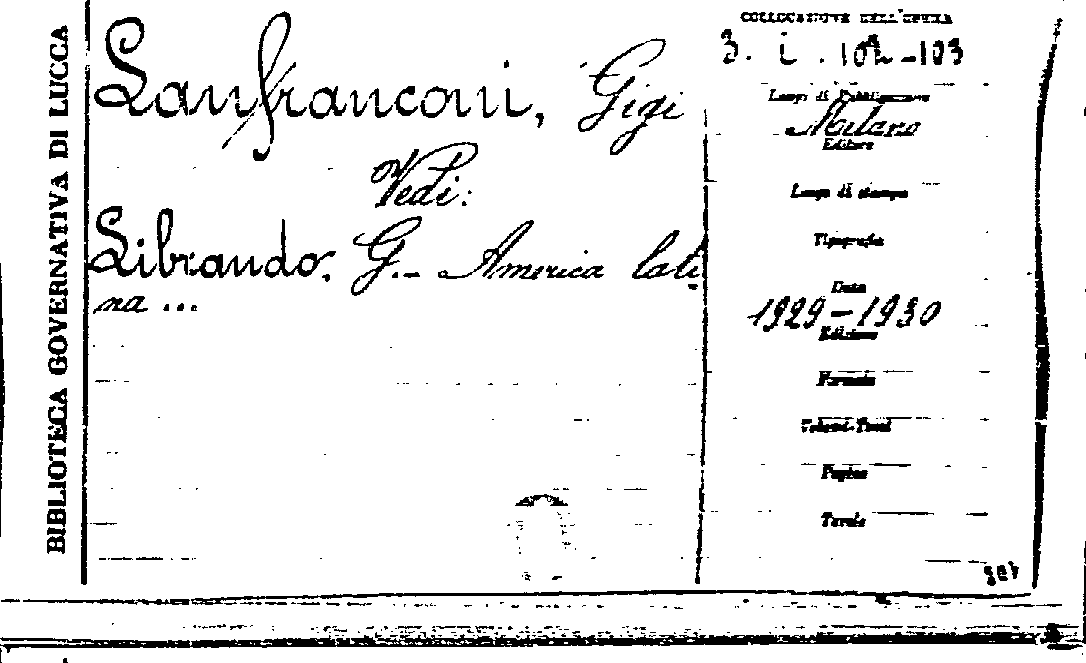 BIBLIOTECA GOVERNATIVA DI LUCCA
Lanfranconi, Gigi
Vedi:
Librando, G.- America lati
na ...
COLLOCAZIONE DELL'OPERA
3. i. 102-103
Luogo di Pubblicazione
Milano
Editore
Luogo di stampa
Tipografia
Data
1929-1930
Edizione
Formato
Volumi-Tomi
Pagine
Tavole